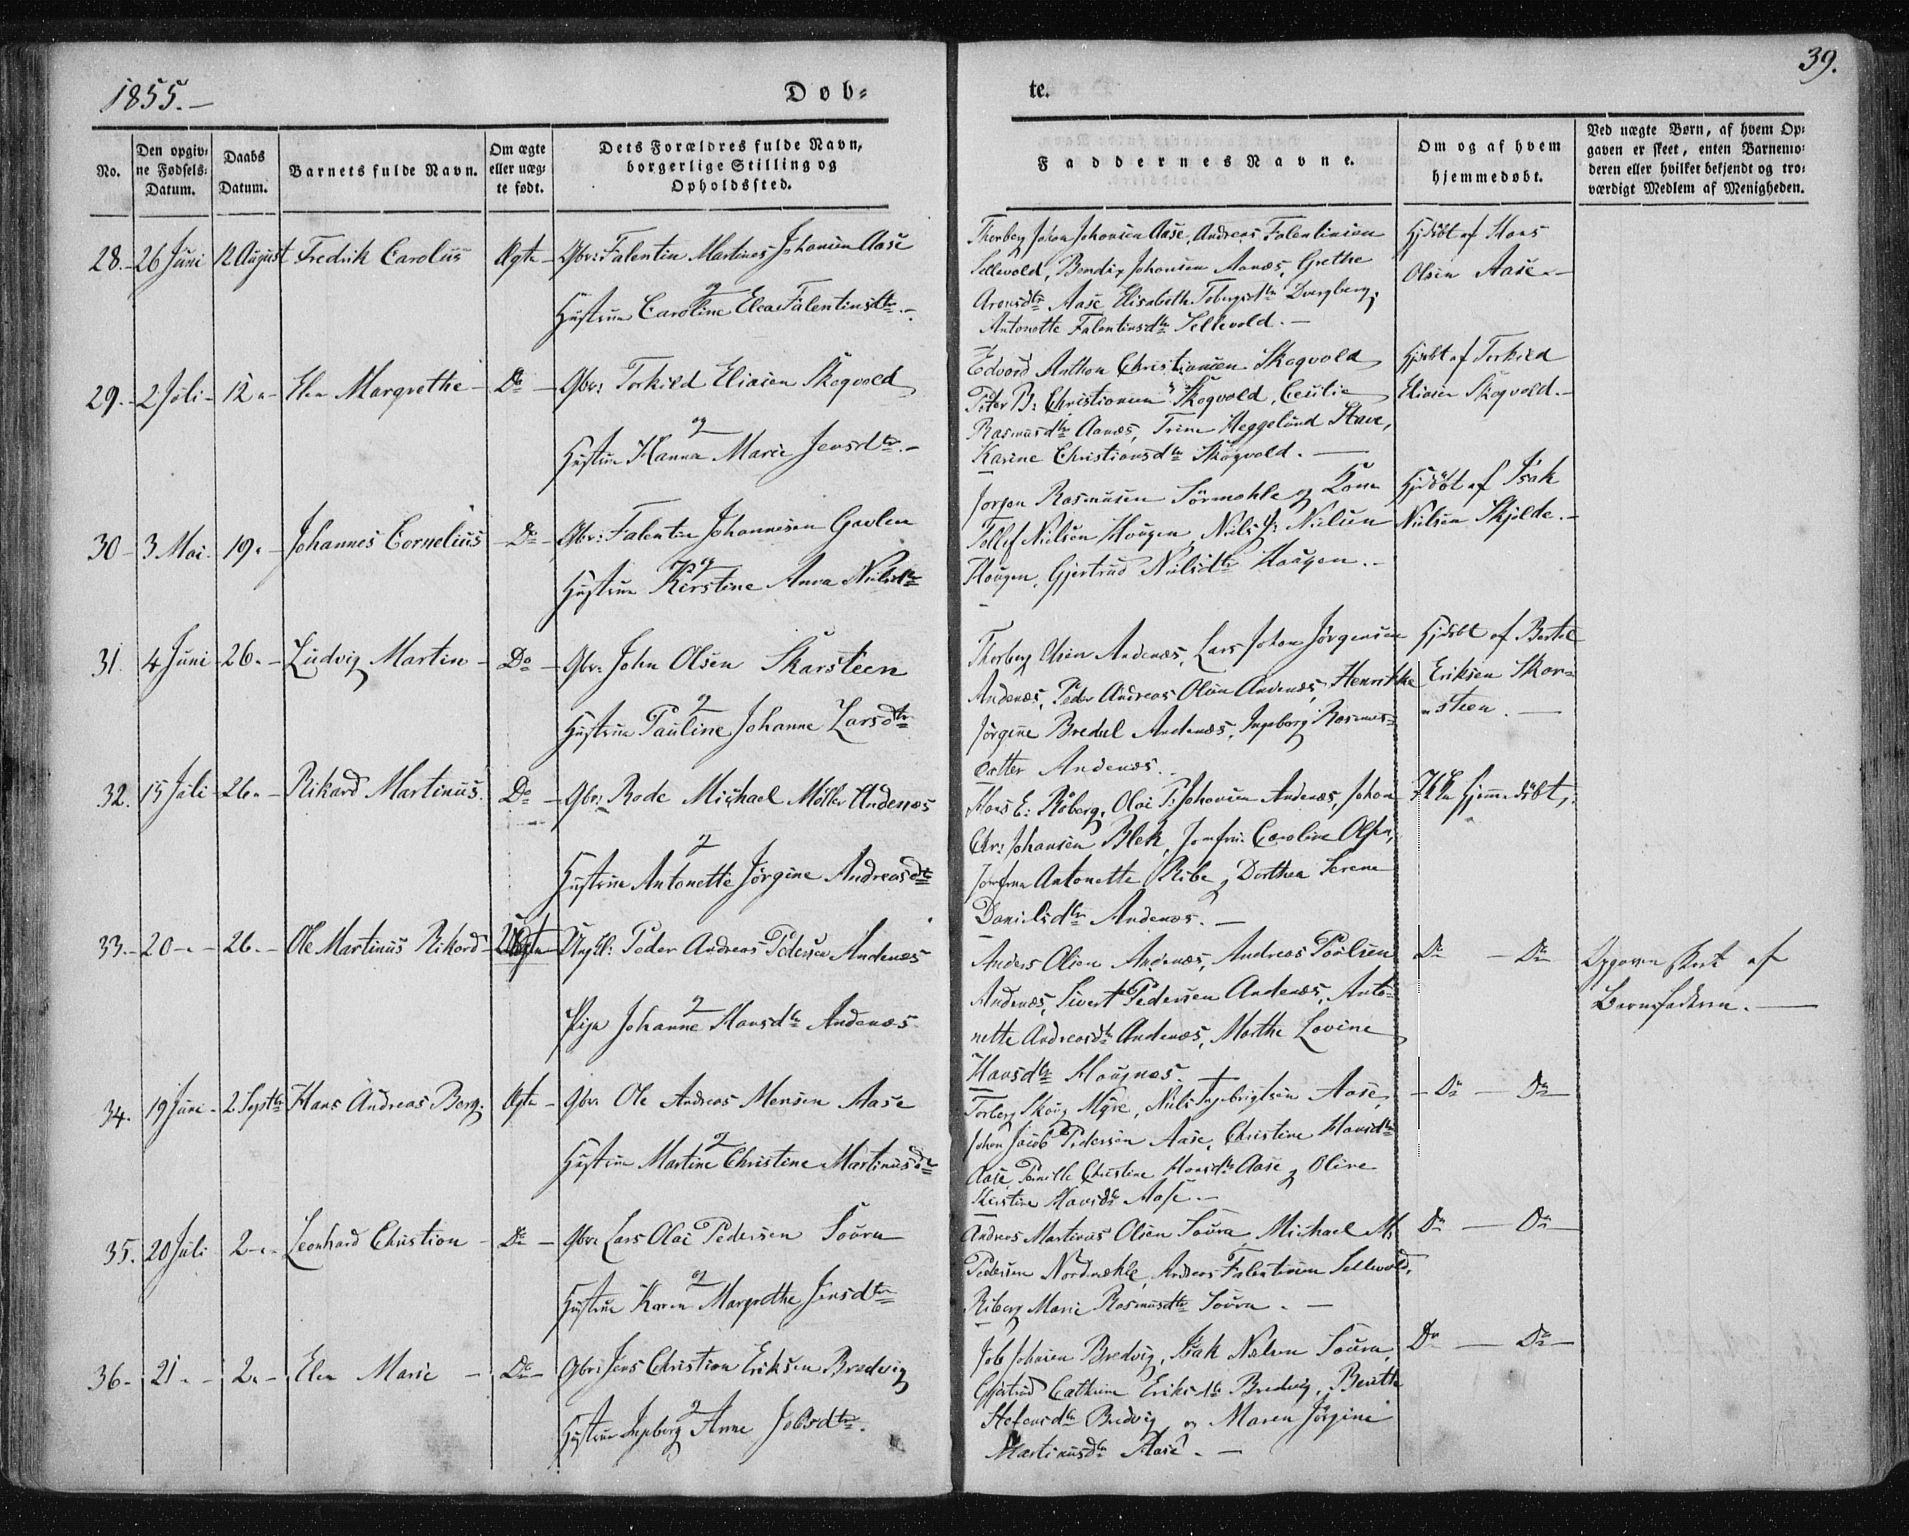 39.
1855.-
Døb-
te.
No.
Den opgiv-
ne Fødsels-
Datum.
Daabs
Datum.
Barnets fulde Navn.
Om ægte
eller uæg-
te født.
Dets Forældres fulde Navn,
borgerlige Stilling og
Opholdssted.
Faddernes Navne.
Om og af hvem
hjemmedøbt.
Ved uægte Børn, af hvem Op-
gaven er skeet, enten Barnemo-
deren eller hvilket bekjendt og tro-
værdigt Medlem af Menigheden.
28.- 26 Juni 12 August Fredrik Carolus Ægte Gbr: Falentin Martines Johansen Aase
og
Hustrue Caroline Elea Falentinsdtr.-
Thorberg Johan Johansen Aase, Andreas Falentinsen
Sellevold, Bendix Johansen Aanæs, Grethe
Aronsdtr Aase, Elisabeth Tobergsdtr Dverberg,
Antonette Falentinsdtr Sellevold.-
Hjdøbt af Hans
Olsen Aase.-
29.- 2 Juli- 12 "- Elen Margrethe- Do- Gbr: Torkild Eliasen Skogvold
og
Hustrue Hanna Marie Jensdtr.-
Edvard Anthon Christiansen Skogvold
Peter B: Christiansen Skogvold, Cecilie
Rasmusdtr Aanæs, Trine Heggelund Stave,
Karine Christiansdtr Skogvold.-
Hjdøbt af Torkild
Eliasen Skogvold.-
30- 3 Mai. 19"- Johannes Cornelius- Do- Gbr: Falentin Johannesen Gavlen
og
Hustrue Kirstine Anna Nielsdtr
Jørgen Rasmusen Sørmehle og Kone
Tollef Nielsen Hougen, Niels Nielsen
Hougen, Gjertrud Nielsdtr Hougen.-
Hjdøbt af Isak
Nielsen Skjolde.-
31. 4 Juni- 26"- Ludvig Martin- Do- Gbr: John Olsen Skarsteen
og
Hustrue Pauline Johanne Larsdtr
Thorberg Olsen Andenæs, Lars Johan Jørgensen
Andenæs, Peder Andreas Olsen Andenæs, Henrikke
Jørgine Bredal Andenæs, Ingeborg Rasmus-
datter Andenæs.
Hjdøbt af Bertel
Eriksen Skar-
steen.-
32. 15 Juli- 26"- Rikard Martinus. Do- Gbr: Rode Michael Møller Andenæs
og
Hustrue Antonette Jørgine Andreasdtr
Hans E: Røberg, Olai P: Johansen Andenæs, Johan
Chr: Johansen Blek, Jomfrue Caroline Olsen,
Jomfrue Antonette Ribe, Dorthea Serene
Danielsdtr Andenæs.-
Ikke hjemmedøbt,
33.- 20 "- 26"- Ole Martinus Rikard- Uægte Ungkl: Peder Andreas Pedersen Andenæs
og
Pige Johanne Hansdtr Andenæs.
Anders Olsen Andenæs, Andreas Poulsen
Andenæs, Sivert Pedersen Andenæs, Anto-
nette Andreasdtr Andenæs, Marthe Lovine
Hansdtr Haugnæs.
Do - Do
Opgaven skeet af
Barnefaderen.-
34. 19 Juni- 2 Septbr Hans Andreas Berg. Ægte- Gbr: Ole Andreas Monsen Aase
og
Hustrue Martine Christine Martinusdtr
Torberg Skoug Myre, Niels Ingebrigtsen Aase,
Johan Jacob Pedersen Aase, Christine Hansdtr
Aase, Pernille Christine Hansdtr Aase og Oline
Kirstine Hansdtr Aase.-
- Do - Do
35. 20 Juli 2 "- Leonhard Christian- Do- Gbr: Lars Olai Pedersen Soura
og
Hustrue Karen Margrethe Jensdtr
Andreas Martinus Olsen Soura, Michael M.
Pedersen Nordmehle, Andreas Falentinsen Sellevold,
Riborg Marie Rasmusdtr Soura.-
Do - Do-
36- 21 "- 2"- Elen Marie- Do- Gbr: Jens Christian Eriksen Bredvig
og
Hustrue Ingeborg Anne Jobsdtr.
Job Johnsen Bredvig, Isak Nielsen Soura,
Gjertrud Cathrine Eriksdtr Bredvig, Berith
Stefensdtr Bredvig og Maren Jørgine
Martinusdtr Aase.-
Do - Do-